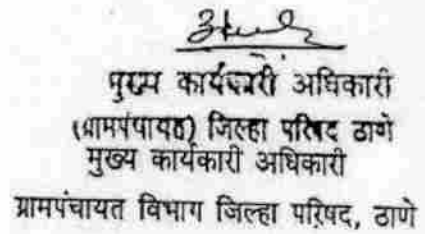 मुख्य कार्यकारी अधिकारी
(ग्रामपंचायत) जिल्हा परिषद ठाणे
मुख्य कार्यकारी अधिकारी
ग्रामपंचायत विभाग जिल्हा परिषद, ठाणे